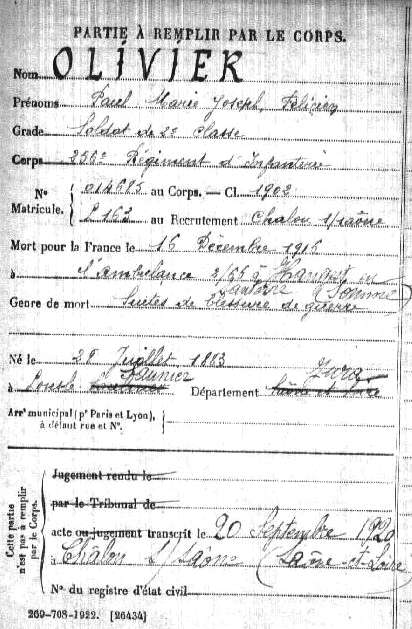 PARTIE À REMPLIR PAR LE CORPS.
Nom OLIVIER
Prénoms Paul Marie Joseph, Félicien
Grade Soldat de 2e Classe
Corps 256e Régiment d'Infanterie
N° Matricule. 014675 au Corps. — Cl. 1903
L 163 au Recrutement Chalon s/saône
Mort pour la France le 16 Décembre 1916
à l'ambulance 2/65 à Hangest en
Santerre (Somme)
Genre de mort Suites de blessure de guerre
Né le 28 Juillet 1883
à Lons le Saunier Département Jura
Saône et Loire
Arr¹ municipal (p' Paris et Lyon),
à défaut rue et N°.
Cette partie n'est pas à remplir par le Corps.
Jugement rendu le
par le Tribunal de
acte ou jugement transcrit le 20 Septembre 1920
à Chalon s/saône (Saône-et-Loire)
N° du registre d'état civil
269-708-1922. [26434]